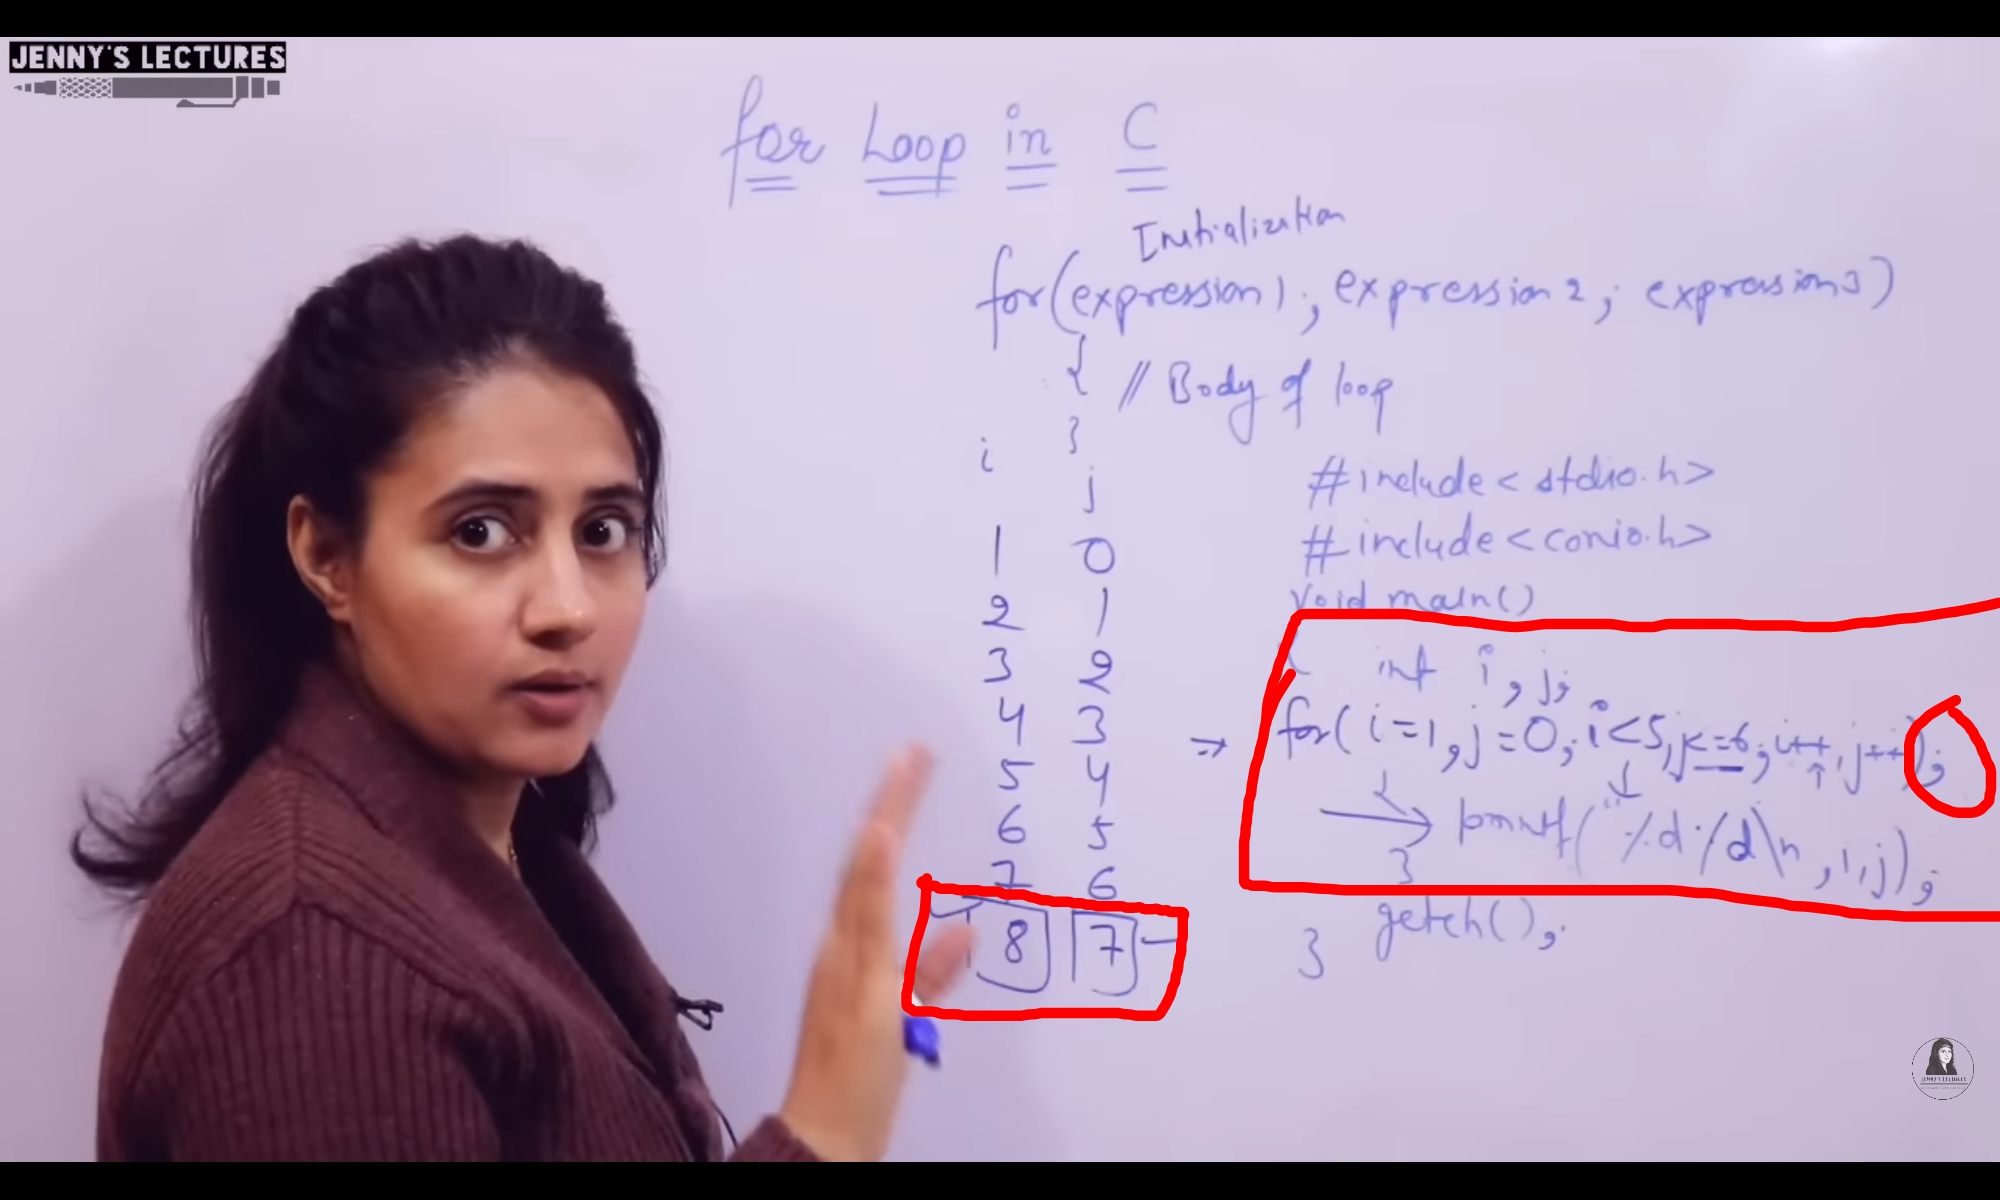 JENNY'S LECTURES
for Loop in C
Initialization
for(expression1; expression2; expression3)
{ // Body of loop
}
i j
1 0
2 1
3 2
4 3
5 4
6 5
7 6
8 7
#include<stdio.h>
#include<conio.h>
void main()
{ int i, j;
⇒ for( i=1, j=0; i<5, j<=6; i++, j++);
{
→ printf("%d %d\n, i, j);
}
getch();
}
JENNY'S LECTURES